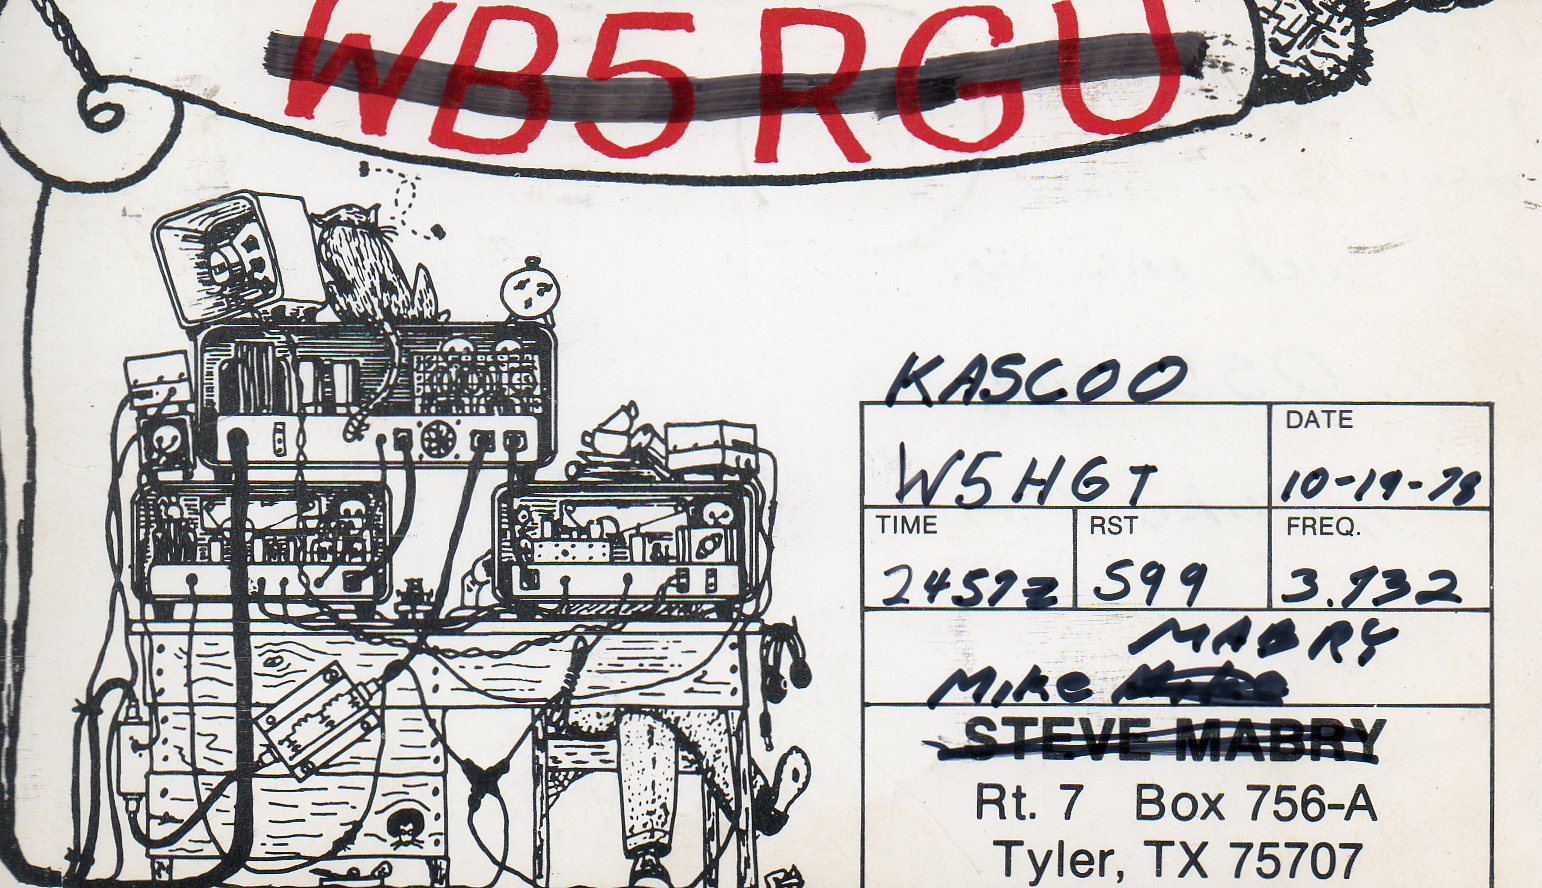 WB5RGU
KA5COO
W5HGT
DATE
10-19-78
TIME
2457z
RST
599
FREQ.
3.732
MABRY
Mike
STEVE MABRY
Rt. 7 Box 756-A
Tyler, TX 75707